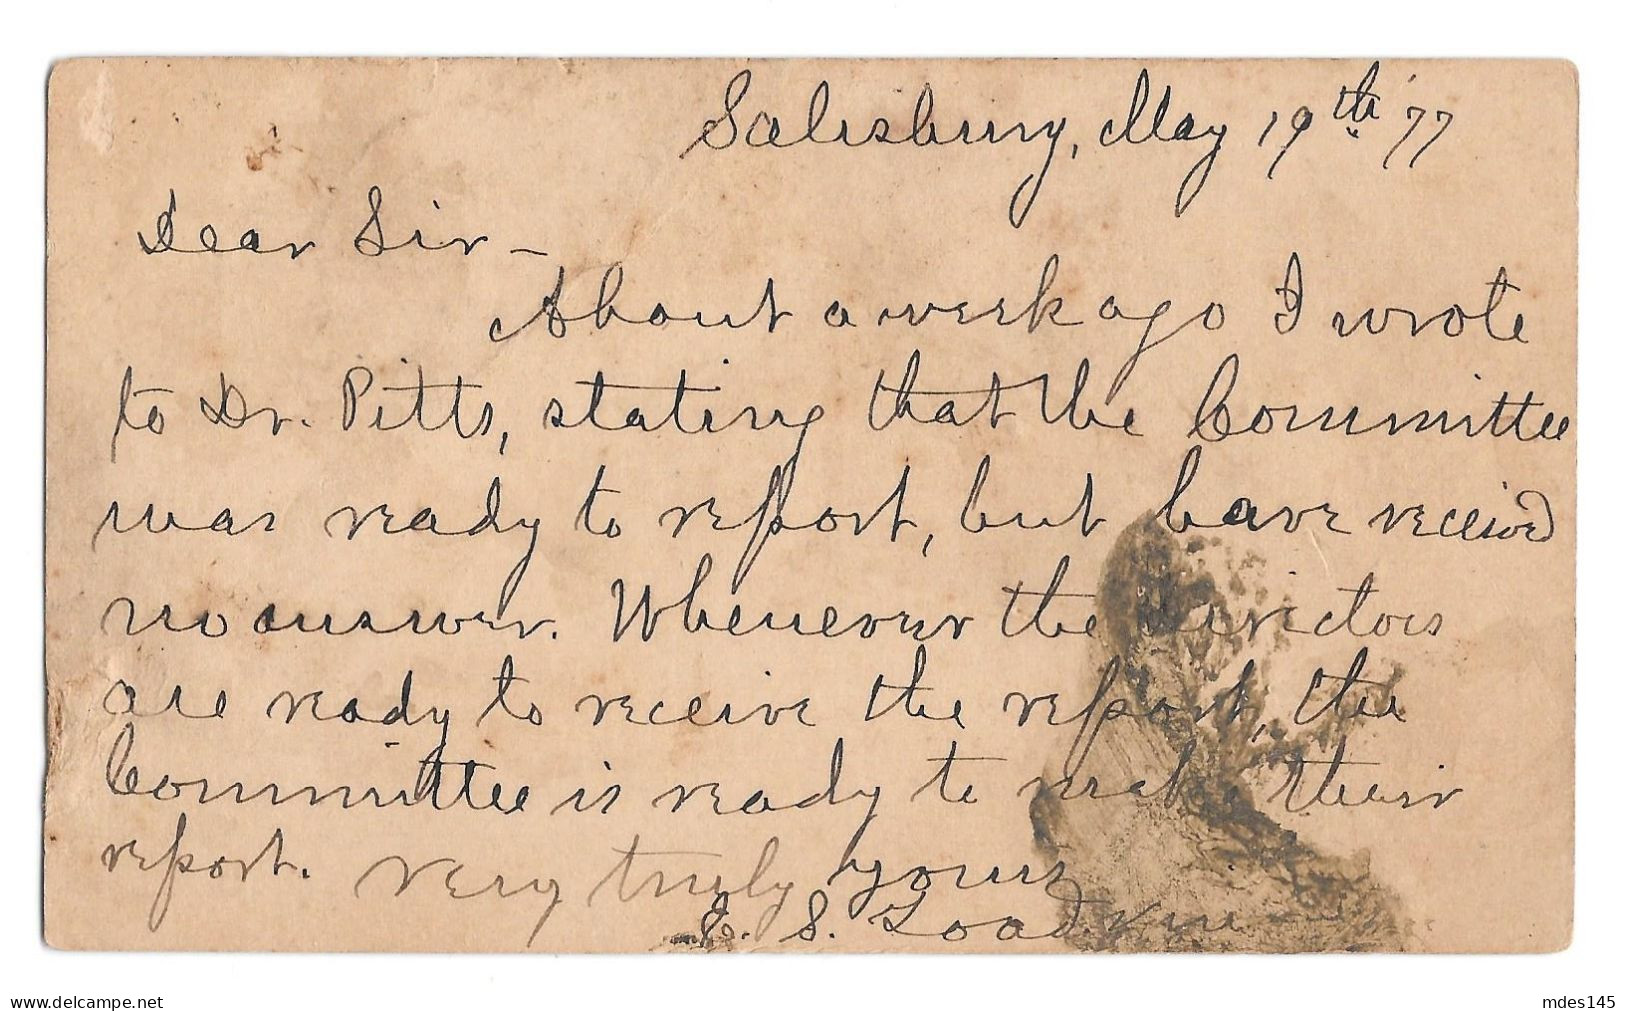 Salisbury, May 19th '77
Dear Sir –
About a week ago I wrote
to Dr. Pitts, stating that the Committee
was ready to report, but have received
no answer. Whenever the Directors
are ready to receive the report, the
Committee is ready to make their
report. Very truly yours
S. Toadvine
www.delcampe.net
mdes145